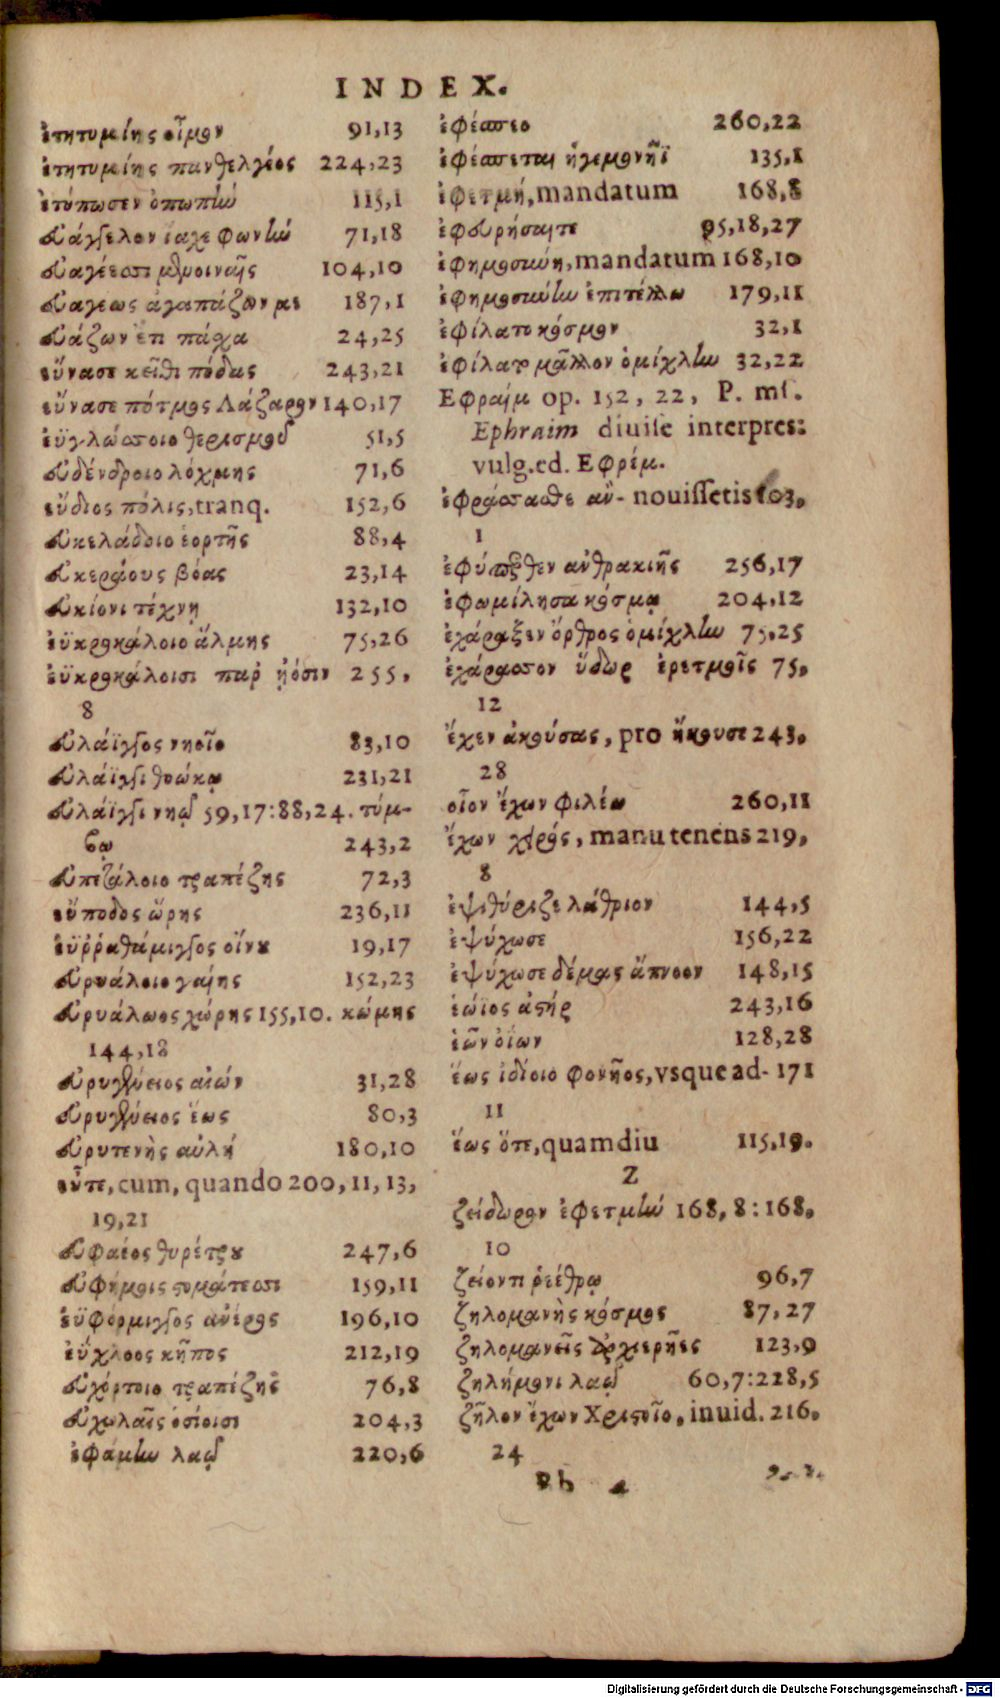 INDEX.
ἐτητυμίης οἶμον 91,13
ἐτητυμίης πανθελγέος 224,23
ἐτύπωσεν ὀπωπὴν 115,1
εὐάγγελον ἴαχε φωνὴν 71,18
εὐαγέεσσι μεμοιναῖς 104,10
εὐαγέως ἀγαπάζων με 187,1
εὐάζων ἔτι πάσχα 24,25
εὔνασε κεῖθι πόδας 243,21
εὔνασε πότμος Λάζαρον 140,17
εὐγλώσσοιο θερισμοῦ 51,5
εὐδένδροιο λόχμης 71,6
εὔδιος πόλις, tranq. 152,6
εὐκελάδοιο ἑορτῆς 88,4
εὐκεράους βόας 23,14
εὐκίονι τέχνῃ 132,10
ἐϋκροκάλοιο ἅλμης 75,26
ἐϋκροκάλοισι παρ᾽ ἠόσιν 255,
8
εὐλάϊγγος νηοῖο 83,10
εὐλάϊγγι θοώκῳ 231,21
εὐλάϊγγι νηῷ 59,17:88,24. τύμ-
βῳ 243,2
εὐπετάλοιο τραπέζης 72,3
εὔποδος ὥρης 236,11
ἐϋῤῥαθάμιγγος οἴνου 19,17
εὐρυάλοιο γαίης 152,23
εὐρυάλωος χώρης 155,10. κώμης
144,18
εὐρυγένειος αἰών 31,28
εὐρυγένειος ἕως 80,3
εὐρυτενὴς αὐλή 180,10
εὖτε, cum, quando 200,11,13,
19,21
εὐφαέος θυρέτρου 247,6
εὐφήμοις στομάτεσσι 159,11
ἐϋφόρμιγγος ἀνέρος 196,10
ἐΰχλοος κῆπος 212,19
εὐχόρτοιο τραπέζης 76,8
εὐχωλαῖς ὁσίοισι 204,3
ἐφάμην λαῷ 220,6
ἐφέσπεο 260,22
ἐφέσπεται ἡγεμονῆϊ 135,1
ἐφετμή, mandatum 168,8
ἐφευρήσαιτε 95,18,27
ἐφημοσύνη, mandatum 168,10
ἐφημοσύνην ἐπιτέλλω 179,11
ἐφίλατο κόσμον 32,1
ἐφίλατο μᾶλλον ὁμίχλην 32,22
Εφραίμ op. 152, 22, P. mſ.
Ephraim diuiſe interpres:
vulg. ed. Εφρέμ.
ἐφράσσασθε ἂν- nouiſſetis 103,
1
ἐφύπερθεν ἀνθρακιῆς 256,17
ἐφωμίλησα κόσμῳ 204,12
ἐχάραξεν ὄρθρος ὁμίχλην 75,25
ἐχάρασσον ὕδωρ ἐρετμοῖς 75,
12
ἔχεν ἀκούσας, pro ἤκουσε 243,
28
οἷον ἔχων φιλέω 260,11
ἔχων χειρός, manu tenens 219,
8
ἐψιθύριζε λάθριον 144,5
ἐψύχωσε 156,22
ἐψύχωσε δέμας ἄπνοον 148,15
ἑώϊος ἀστήρ 243,16
ἑῶν ὀΐων 128,28
ἕως ἰδίοιο φονῆος, vsque ad- 171
11
ἕως ὅτε, quamdiu 115,19.
Z
ζείδωρον ἐφετμὴν 168, 8:168,
10
ζείοντι ῥεέθρῳ 96,7
ζηλομανὴς κόσμος 87,27
ζηλομανεῖς ἀρχιερῆες 123,9
ζηλήμονι λαῷ 60,7:228,5
ζῆλον ἔχων Χριστοῖο, inuid. 216,
24
Digitalisierung gefördert durch die Deutsche Forschungsgemeinschaft - DFG